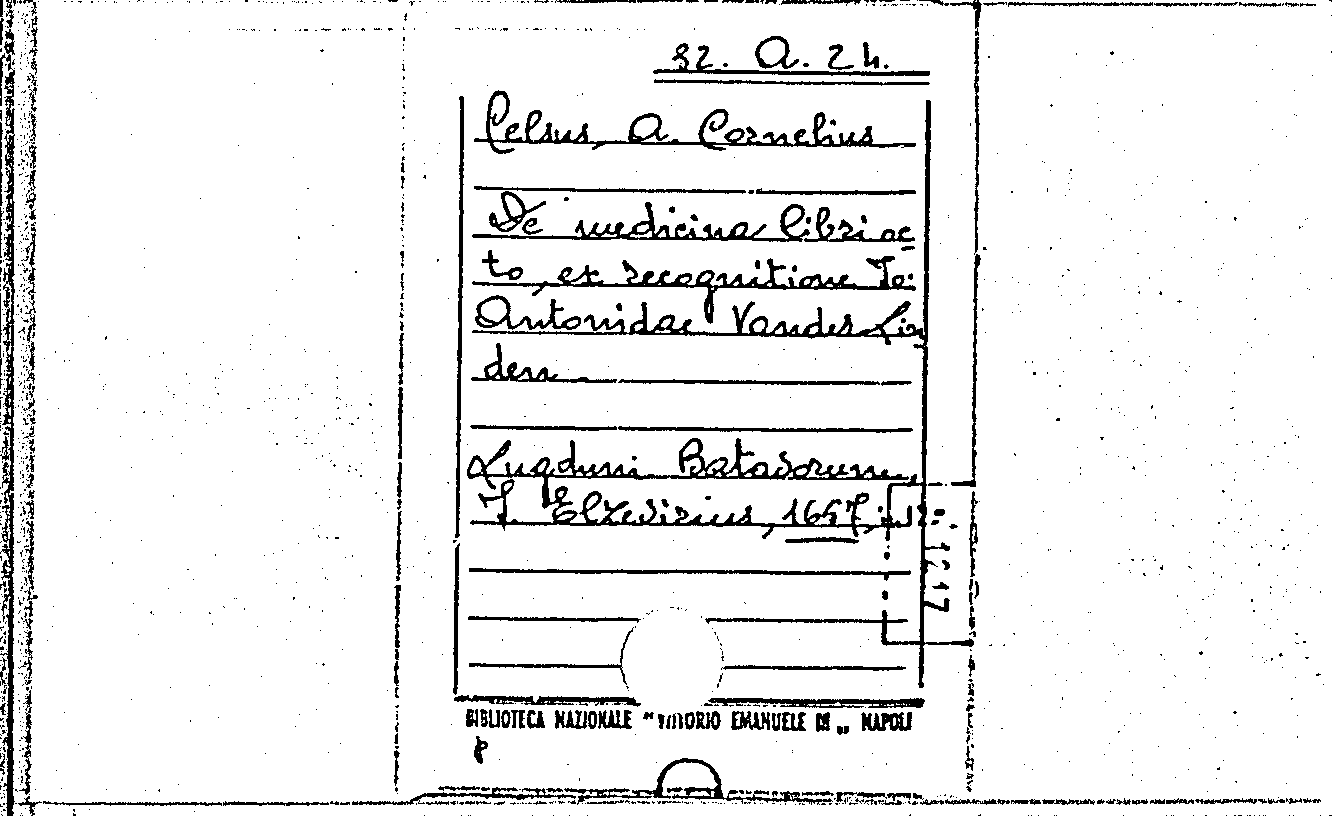 82. A. 24.
Celsus, A. Cornelius
De medicina libri oc
to, ex recognitione Io:
Antonidae Vander Lin
den
Lugduni Batavorum,
J. Elzevirius, 1657, in 12º.
1217
BIBLIOTECA NAZIONALE "VITTORIO EMANUELE III" NAPOLI